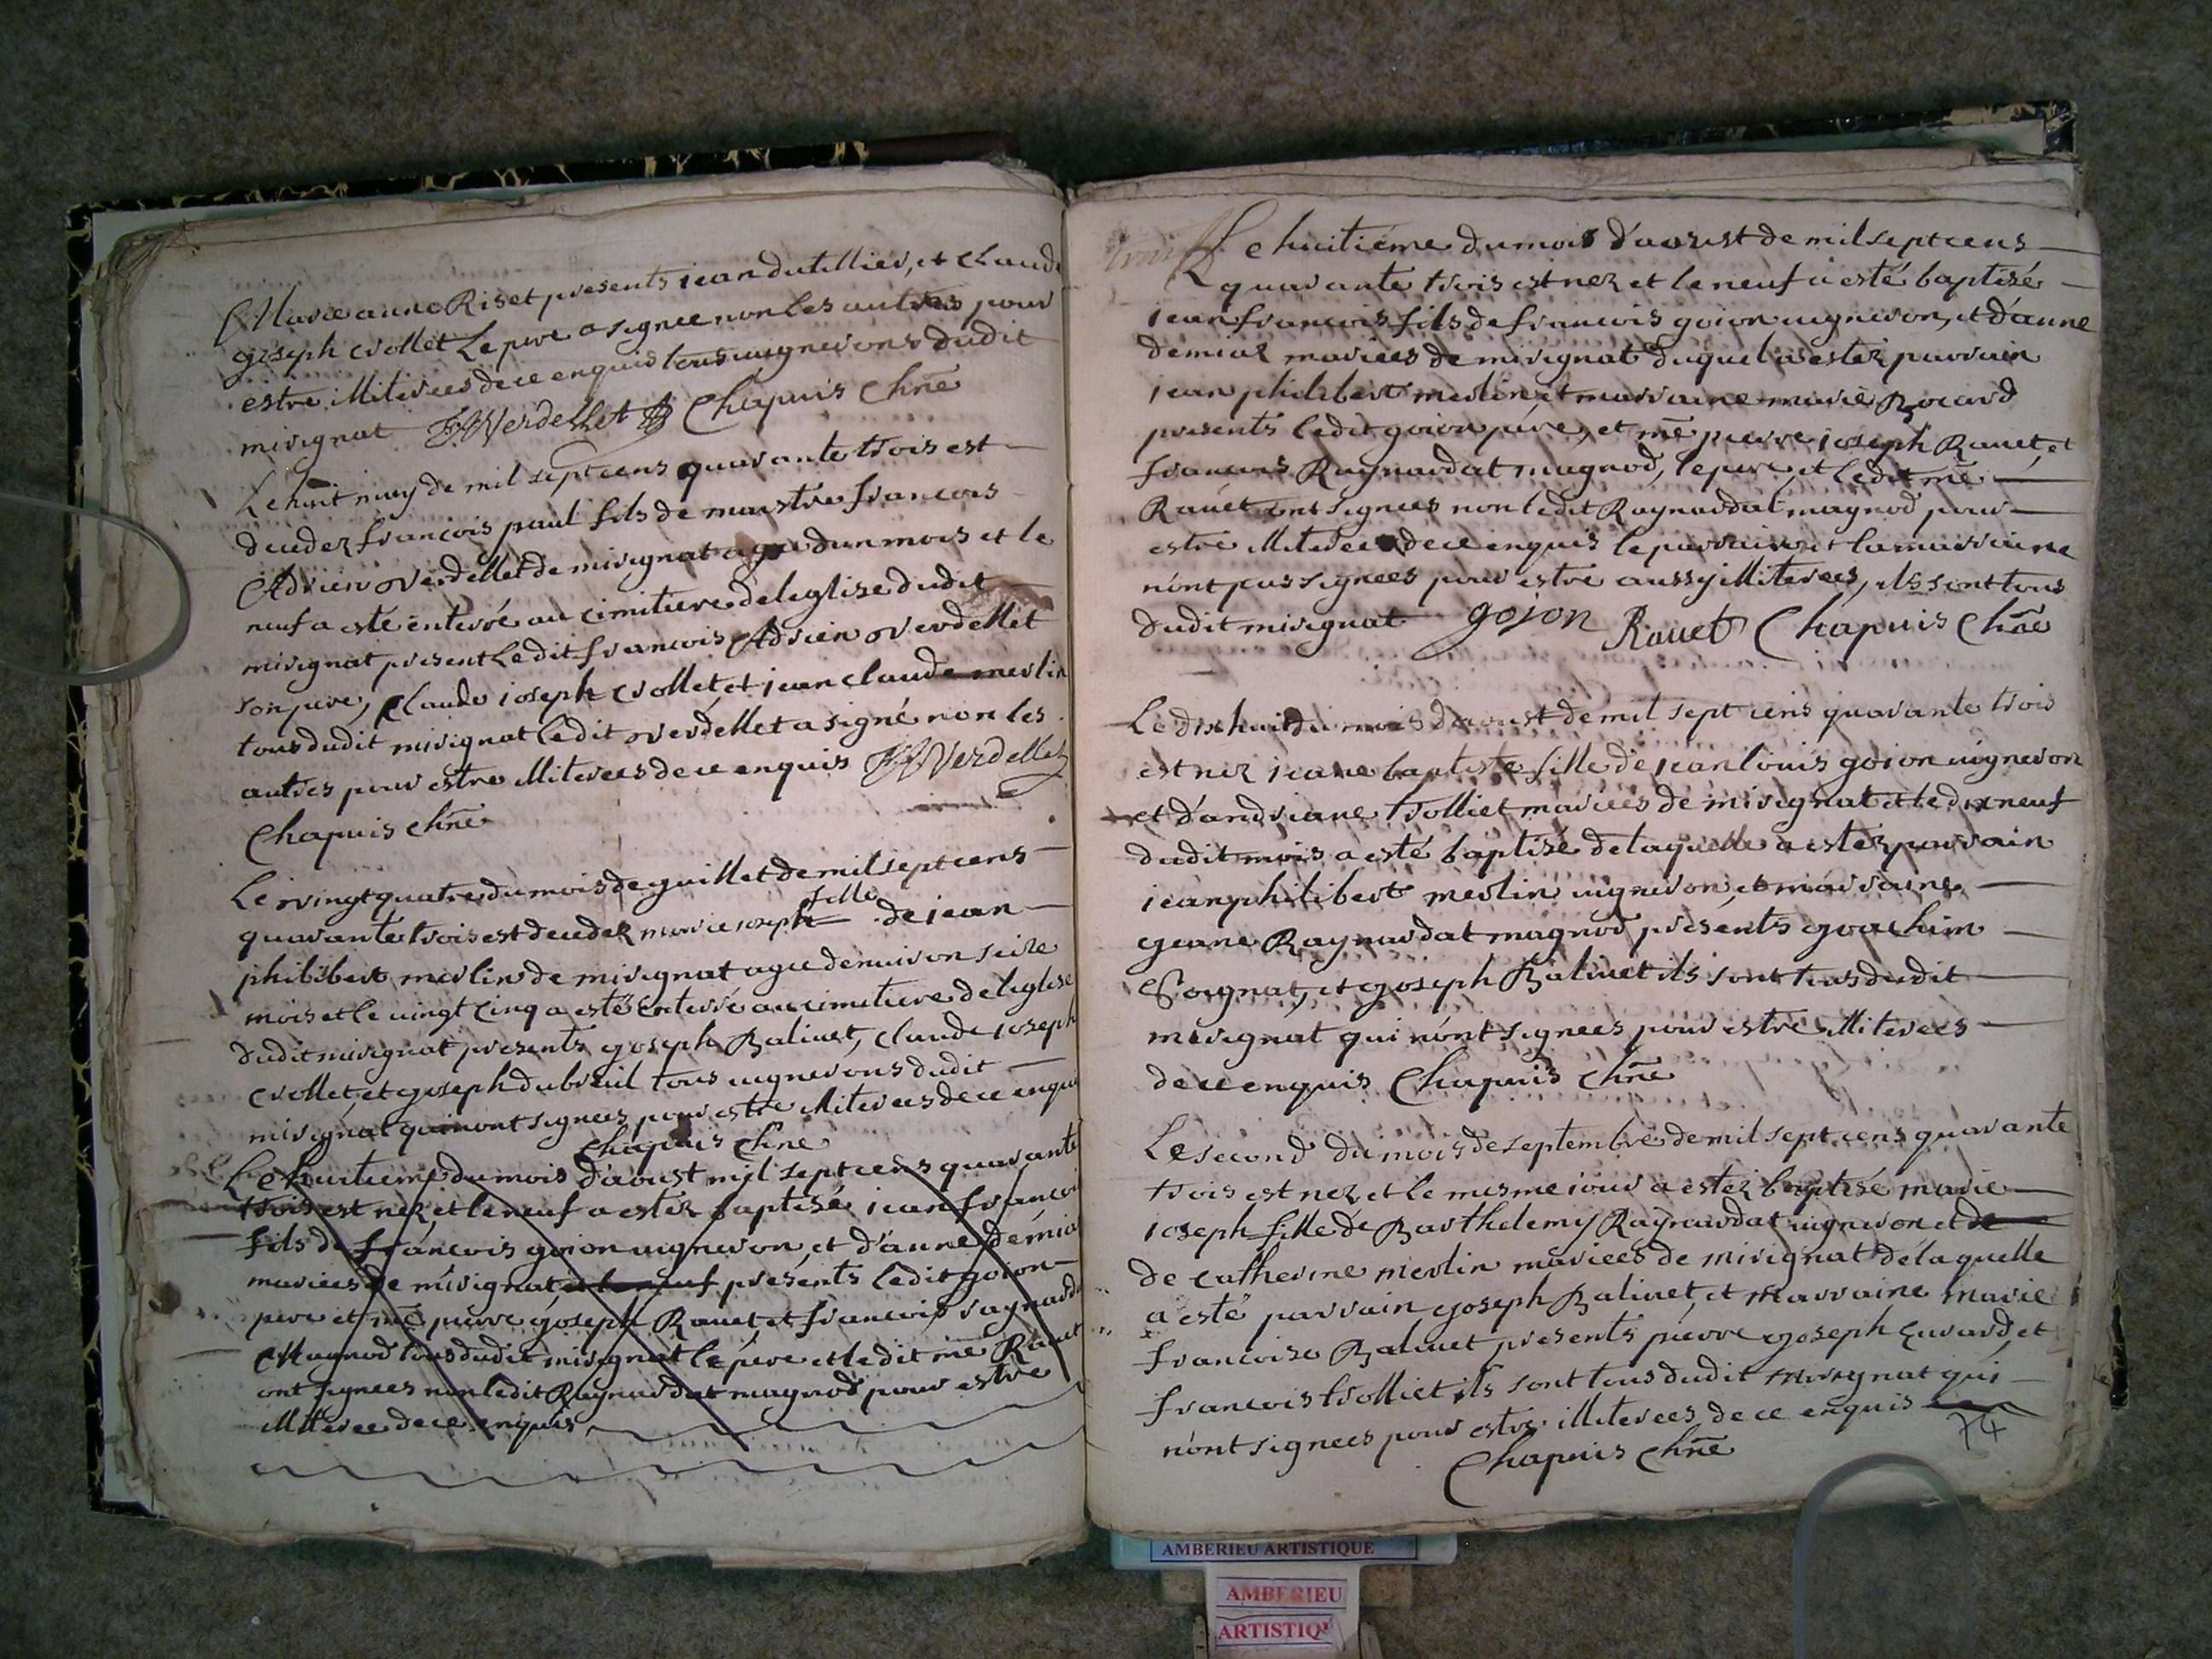 Marie anne Riset presents iean dutillier, et Claude
joseph crollet Le pere a signee non les autres pour
estre illiterees de ce enquis tous uignerons dudit
mirignat FAVerdellet Chapuis Chñe
Le huit may de mil septcens quarante trois est
decedez francois paul fils de maistre francois
Adrien overdellet de mirignat agee dun mois et le
neuf a esté enterré au cimitiere deleglise dudit
mirignat present Ledit francois Adrien overdellet
son pere, Claude ioseph crollet, et iean claude merlin
tous dudit mirignat Ledit overdellet a signé non les
autres pour estre illiterees de ce enquis FAVerdellet
Chapuis chñe
Le vingt quatre du mois de juillet de mil septcens
quarante trois est decedez marie ioseph fille de iean
philibert merlin de mirignat agee denuiron seize
mois et le uingt cinq a esté Enterré au cimetiere deleglise
dudit mirignat presents joseph Baliuet, claude ioseph
crollet, et joseph dubreuil tous uignerons dudit
mirignat qui nont signees pour estre illiterees de ce enquis
Chapuis Chñe
Le huitieme du mois d'aoust mil septcens quarante
trois est nez et le neuf a estez baptisé iean francois
fils de francois goion uigneron, et d'anne démiaz
mariees de mirignat et le neuf presents ledit goion
pere et mẽ pierre joseph Rauet, et francois raynardat
Magnod tous dudit mirignat le pere et ledit mẽ Rauet
ont signees non ledit Raynardat magnod pour estre
illiteree de ce enquis
Le huitiéme du mois d'aoust de mil septcens
quarante trois est nez et le neuf a esté baptisé
iean francois fils de francois goion uigneron, et d'anne
demiaz mariees de mirignat duquel a estez parrain
iean philibert merlin et marraine marie Bocard
presents ledit goion pére, et mẽ pierre ioseph Rauet, et
francois Raynardat magnod, le pere, et ledit mẽ
Rauet ont signees non ledit Raynardat magnod pour
estre illiteree de ce enquis le parrain et la marraine
n'ont pas signees pour estre aussy illiterees, ils sont tous
dudit mirignat gojon Rauet Chapuis Chñe
Le dix huit du mois d'aoust de mil sept cens quarante trois
est nez ieane baptiste fille de iean louis goion uigneron
et d'andriane trolliet mariees de mirignat et le dix neuf
dudit mois a esté baptisé de laquelle a estez parrain
iean philibert merlin uigneron, et marraine
jeane Raynardat magnod présents joachim
Coignat, et joseph Baliuet ils sont tous dudit
mirignat qui n'ont signees pour estre illiterees
de ce enquis Chapuis chñe
Le second du mois de septembre de mil sept cens quarante
trois est nez et le mesme iour a estez baptisé marie
ioseph fille de Barthelemy Raynardat uigneron et de
de catherine merlin mariees de mirignat de laquelle
a esté parrain joseph Baliuet, et marraine marie
francoise Baliuet presents pierre joseph Euvrard, et
francois trolliet ils sont tous dudit mirignat qui
n'ont signees pour estre illiterees de ce enquis
Chapuis Chñe
74
AMBERIEU ARTISTIQUE
AMBERIEU
ARTISTIQU